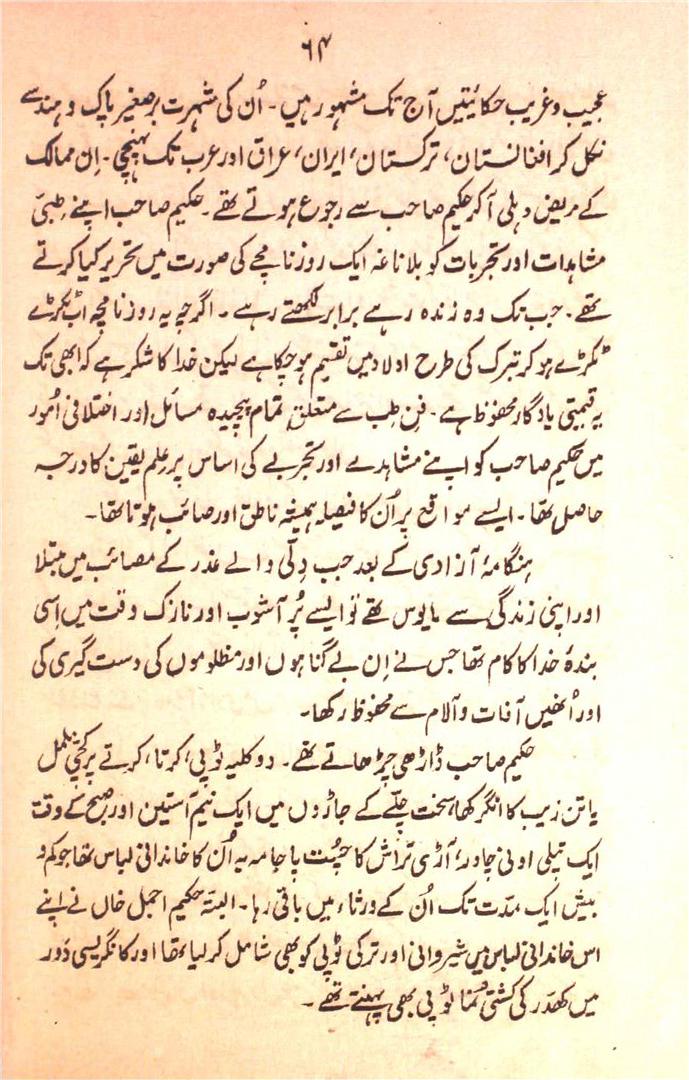 ۶۴
عجیب و غریب حکائیتیں آج تک مشہور ہیں۔ اُن کی شہرت برصغیر پاک و ہند سے
نکل کر افغانستان، ترکستان، ایران، عراق اور عرب تک پہنچی۔ اِن ممالک
کے مریض دہلی آکر حکیم صاحب سے رجوع ہوتے تھے۔ حکیم صاحب اپنے طبّی
مشاہدات اور تجربات کو بلاناغہ ایک روزنامچے کی صورت میں تحریر کیا کرتے
تھے۔ جب تک وہ زندہ رہے برابر لکھتے رہے۔ اگرچہ یہ روزنامچہ اب ٹکڑے
ٹکڑے ہو کر تبرک کی طرح اولاد میں تقسیم ہو چکا ہے لیکن خدا کا شکر ہے کہ ابھی تک
یہ قیمتی یادگار محفوظ ہے۔ فنِ طِب سے متعلق تمام پیچیدہ مسائل اور اختلافی اُمور
میں حکیم صاحب کو اپنے مشاہدے اور تجربے کی اساس پر علم یقین کا درجہ
حاصل تھا۔ ایسے مواقع پر اُن کا فیصلہ ہمیشہ ناطق اور صائب ہوتا تھا۔
ہنگامۂ آزادی کے بعد جب دِلّی والے غدر کے مصائب میں مبتلا
اور اپنی زندگی سے مایوس تھے تو ایسے پُر آشوب اور نازک وقت میں اِسی
بندۂ خدا کا کام تھا جس نے اِن بے گناہوں اور مظلوموں کی دست گیری کی
اور اُنھیں آفات و آلام سے محفوظ رکھا۔
حکیم صاحب ڈاڑھی چڑھاتے تھے۔ دو کلیہ ٹوپی، کرتا، کرتے پر کچی ململ
یا تن زیب کا انگرکھا، سخت چلّے کے جاڑوں میں ایک نیم آستین اور صبح کے وقت
ایک پتلی اونی چادر، آڑی تراش کا چُست پاجامہ یہ اُن کا خاندانی لباس تھا جو کم و
بیش ایک مدّت تک اُن کے ورثاء میں باقی رہا۔ البتہ حکیم اجمل خاں نے اپنے
اس خاندانی لباس میں شیروانی اور ترکی ٹوپی کو بھی شامل کر لیا تھا اور کانگریسی دَور
میں کھدّر کی کشتی نُما ٹوپی بھی پہنتے تھے۔